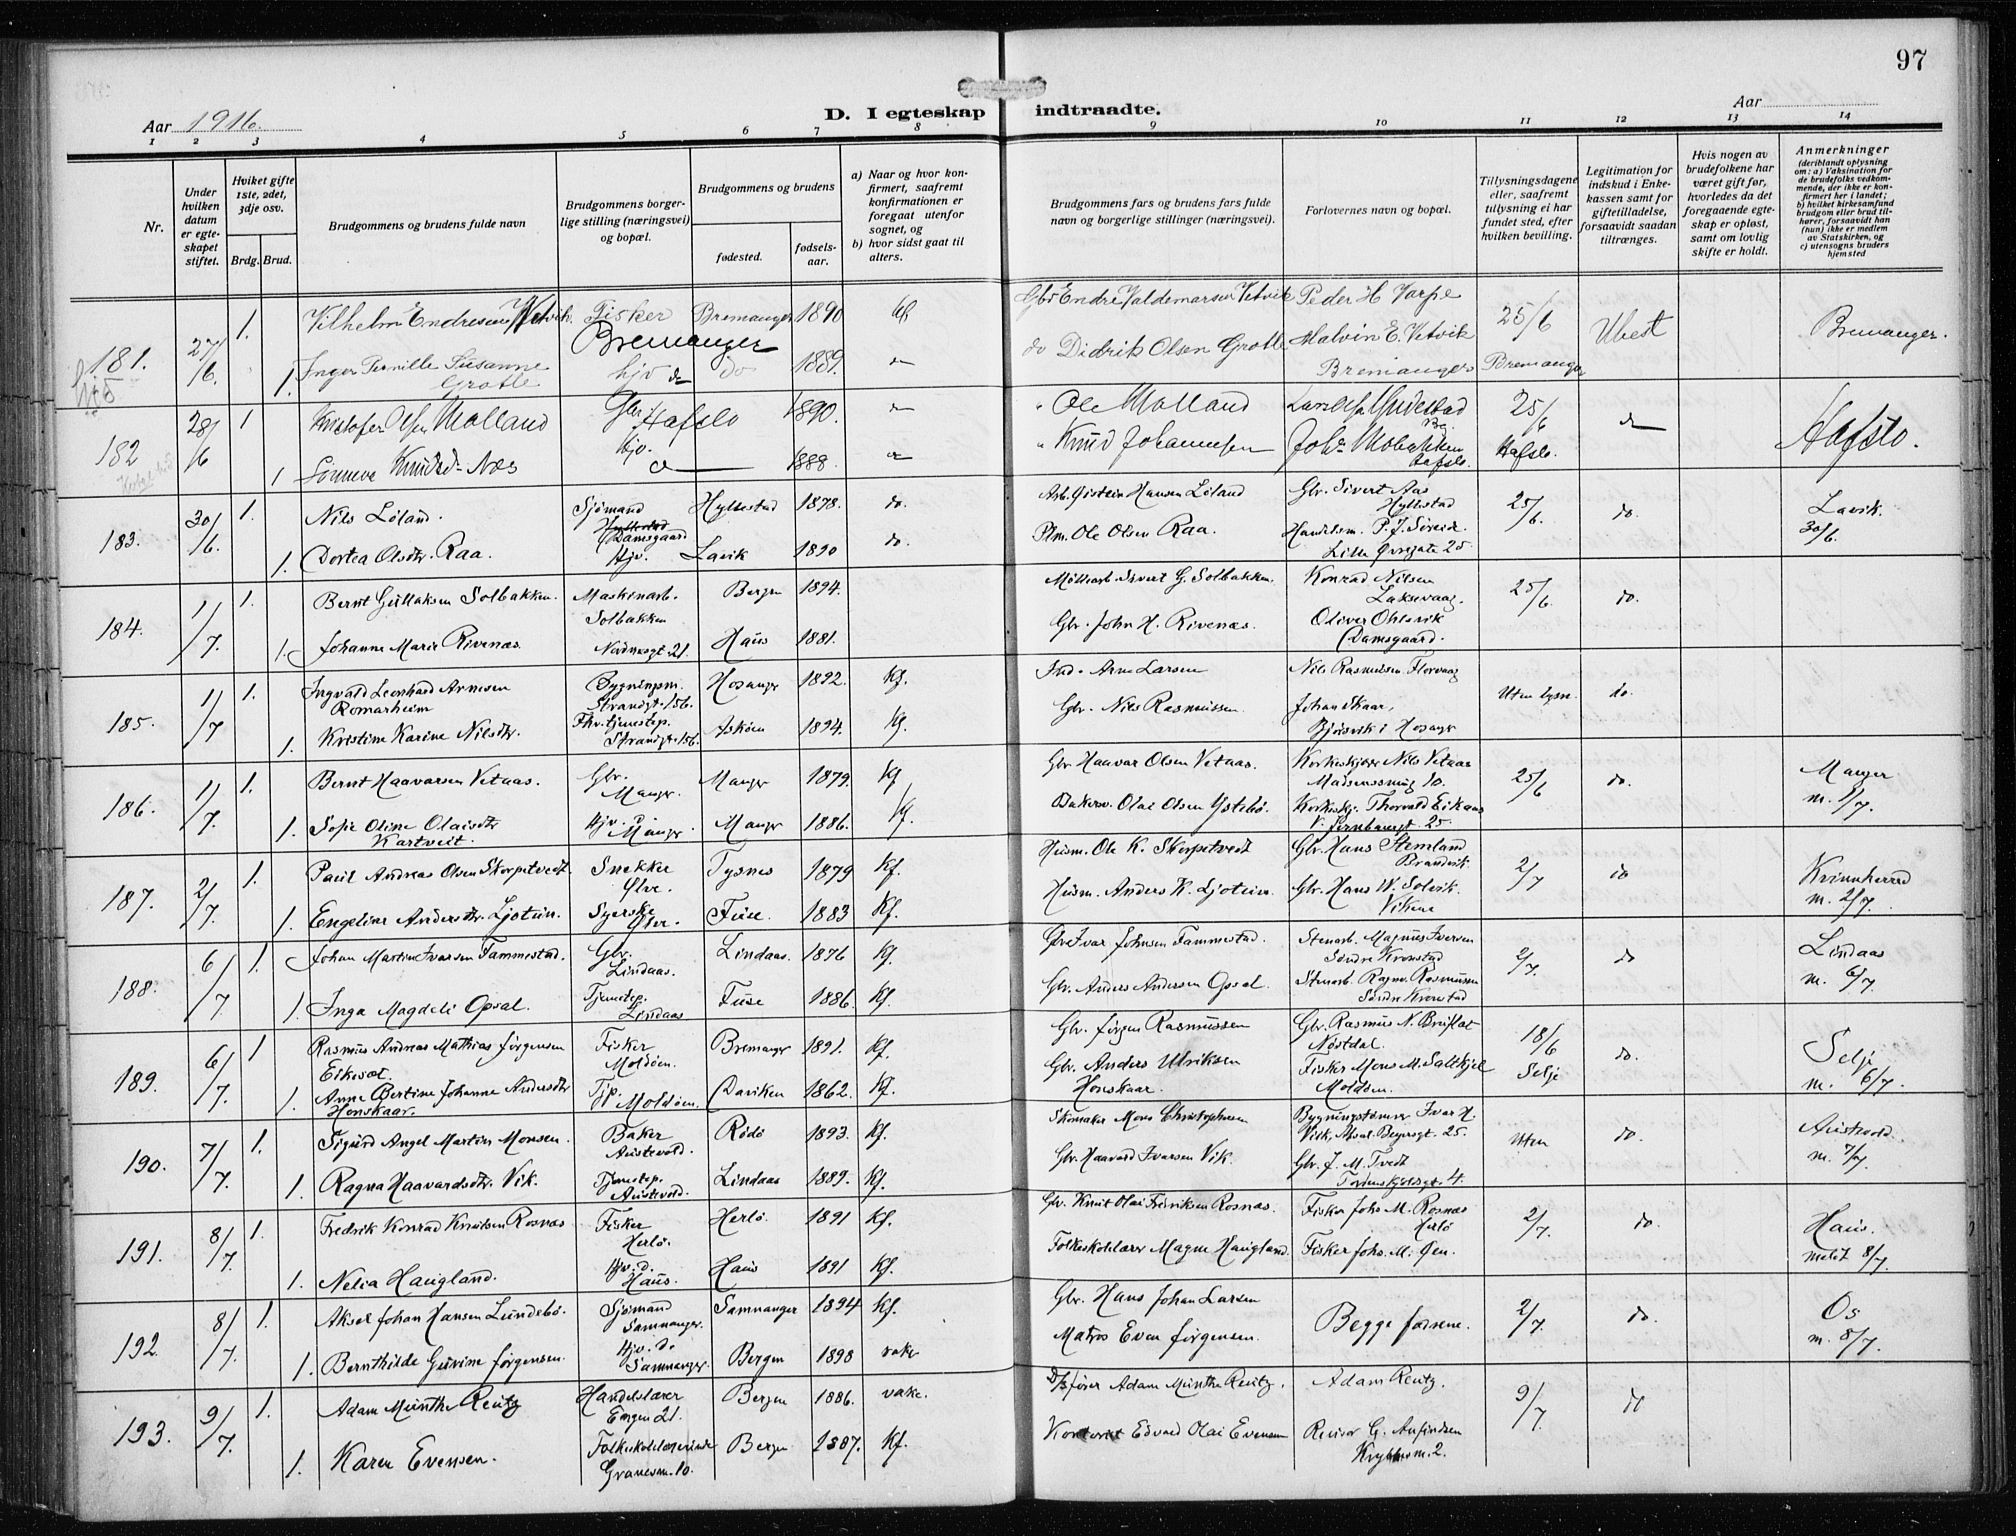 97
Aar 1916.
D. I egteskap indtraadte.
Aar
1 2 3 4 5 6 7 8 9 10 11 12 13 14
Nr.
Under hvilken datum er egteskapet stiftet.
Hviket gifte 1ste, 2det, 3dje osv.
Brdg. Brud.
Brudgommens og brudens fulde navn
Brudgommens borgerlige stilling (næringsvei) og bopæl.
Brudgommens og brudens
fødested.
fødselsaar.
a) Naar og hvor konfirmert, saafremt konfirmationen er foregaat utenfor sognet, og
b) hvor sidst gaat til alters.
Brudgommens fars og brudens fars fulde navn og borgerlige stillinger (næringsvei).
Forlovernes navn og bopæl.
Tillysningsdagene eller, saafremt tillysning ei har fundet sted, efter hvilken bevilling.
Legitimation for indskud i Enkekassen samt for giftetilladelse, forsaavidt saadan tiltrænges.
Hvis nogen av brudefolkene har været gift før, hvorledes da det foregaaende egteskap er opløst, samt om lovlig skifte er holdt.
Anmerkninger (deriblandt oplysning om: a) Vaksination for de brudefolks vedkommende, der ikke er konfirmert her i landet; b) hvilket kirkesamfund brudgom eller brud tilhører, forsaavidt han (hun) ikke er medlem av Statskirken, og c) utensogns bruders hjemsted
181. 27/6. 1. Vilhelm Endresen Vetvik. Fisker Bremanger Bremanger 1890 Gbr Endre Valdemarsen Vetvik Peder H Varpe 25/6 Ubest Bremanger.
1. Inger Pernille Susanne Grotle hjv do do 1889. do Didrik Olsen Grotle Malvin E. Vetvik Bremanger Bremanger
182 28/6 1 Kristofer Olsen Molland Gbr Hafslo 1890. " Ole Molland 25/6 Hafslo.
1 Sønneva Knudsd. Næs Hjv. 1888. " Knud Johannesen Hafslo. Hafslo.
183. 30/6. 1. Nils Løland. Sjømand Damsgaard Hyllestad 1878. do. Arb. Øistein Hansen Løland Gbr. Sivert Aas Hyllestad 25/6. do. Lavik. 30/6.
1. Dortea Olsdtr. Raa. Hjv. Lavik 1890 do. Plm. Ole Olsen Raa. Handelsm. P. J. Søreide Lille Øvregate 25.
184. 1/7. 1. Bernt Gullaksen Solbakken. Maskinarb. Solbakken Bergen 1894. G. Solbakken. Konrad Nilsen Laksevaag. 25/6. do.
1. Johanne Marie Rivenæs. Nordnesgt. 21. Haus 1881. Gbr. John H. Rivenæs. Oliver Ohlsvik Damsgaard.
185. 1/7 1. Ingvald Leonhard Arnesen Romarheim Bygningsm. Strandgt. 156. Hosanger 1892. Kf. Ind. Arne Larsen Nils Rasmussen Florvaag Uten lysn. do.
1. Kristine Karine Nilsdtr. Fhv. tjenestep. Strandgt. 156. Askøen 1894. Kf. Gbr. Nils Rasmussen. Johan Skaar, Bjørsvik i Hosanger
186. 1/7. 1. Bernt Haavarsen Vetaas. Gbr. Manger. Manger 1879. Kf Gbr Haavar Olsen Vetaas. Korkeskjærer Nils Vetaas Madsenssmug 10. 25/6 do. Manger m. 1/7.
1. Sofie Oline Olaisdtr Kartveit. Hjv. d. Manger. Manger 1886. Kf. Bakersv. Olai Olsen Ystebø. Korkeskj. Thorvald Eikaas V. Jernbanegt. 25.
187. 2/7. 1. Paul Andreas Olsen Skorpetvedt. Snekker Ølve. Tysnes 1879 Kf. Husm. Ole K. Skorpetvedt Gbr. Hans Stemland Brandvik 2/7 do Kvinnherred m. 2/7.
1. Engeline Andersdtr. Ljotun. Syerske Ølve. Fuse. 1883 Kf. Husm. Anders K. Ljotun. Gbr. Hans W. Solvik. Vikene
188. 6/7 1. Johan Martin Ivarsen Fammestad. Gbr. Lindaas. Lindaas. 1876 Kf. Ivar Johnsen Fammestad. Stenarb. Magnus Iversen Søndre Kronstad 2/7. do Lindaas m. 6/7.
1. Inga Magdeli Opsal. Tjenestep. Lindaas Fuse 1886. Kf. Gbr. Anders Andersen Opsal. Stenarb. Ragnv. Rasmussen Søndre Kronstad
189. 6/7. 1 Rasmus Andreas Mathias Jørgensen Eikeset. Fisker Moldøen. Bremanger 1891. Kf. Gbr. Jørgen Rasmussen Gbr. Rasmus N. Bruflat Nøstdal. 18/6 Selje do. Selje m. 6/7.
1. Anne Bertine Johanne Andersdtr Honskaar. Tjp. Moldøen. Daviken 1862. Kf. Gbr. Anders Ulriksen Honskaar. Fisker Mons M. Saltkjel Moldøen.
190. 7/7. 1. Sigurd Angel Martin Monsen. Baker Austevold. Rødø 1893. Kf. Skomaker Mons Christophersen Bygningstømrer Ivar H. Vik, Absal. Beyersgt. 25. Uten do. Austevold. m. 7/7.
1. Ragna Haavardsdtr. Vik. Tjenestep. Austevold. Lindaas 1889. Kf. Gbr. Haavard Ivarsen Vik. Gbr. J. M. Tvedt Tordenskjoldsgt. 4.
191. 8/7. 1. Fredrik Konrad Knutsen Rosnæs Fisker Herlø. Herlø. 1891 Kf. Gbr. Knut Olai Fredriksen Rosnæs. Fisker Johs M. Rosnæs Herlø 2/7. do. Haus. meldt 8/7.
1. Nelia Haugland. Hjv. d. Haus. Haus 1891 Kf. Folkeskolelærer Magne Haugland. Fisker Johs. M. Øen.
192. 8/7. 1. Aksel Johan Hansen Lundebø. Sjømand Samnanger. Samnanger 1894 Kf. Gbr. Hans Johan Larsen Begge fædrene. 2/7. do. Os m. 8/7.
1. Bernthilde Guvine Jørgensen. Hjv. d. Samnanger. Bergen 1898 vake Matros Even Jørgensen.
193. 9/7. 1. Adam Munthe Reutz Handelslærer Engen 21. Bergen 1886. vake. D/s fører Adam Munthe Reutz. Adam Reutz. 9/7. do
1. Karen Evensen. Folkeskolelærerinde Granesm. 10. Bergen 1887. Kf. Kontorist Edvard Olai Evensen Revisor G. Anfindsen Krybbesm. 2.